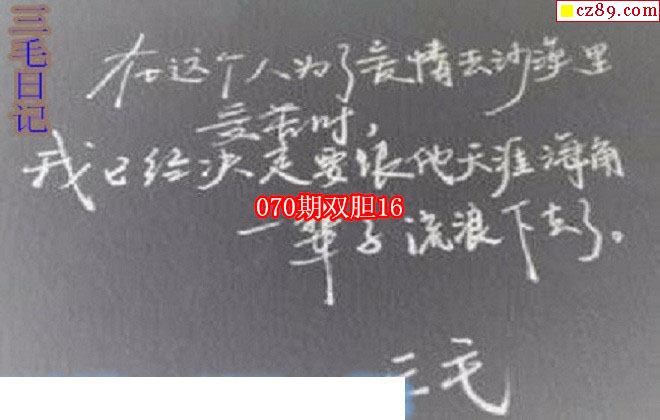 cz89.com
三毛日记
在这个人为了爱情去沙漠里
受苦时，
我已经决定要跟他天涯海角
070期双胆16
一辈子流浪下去了。
三毛